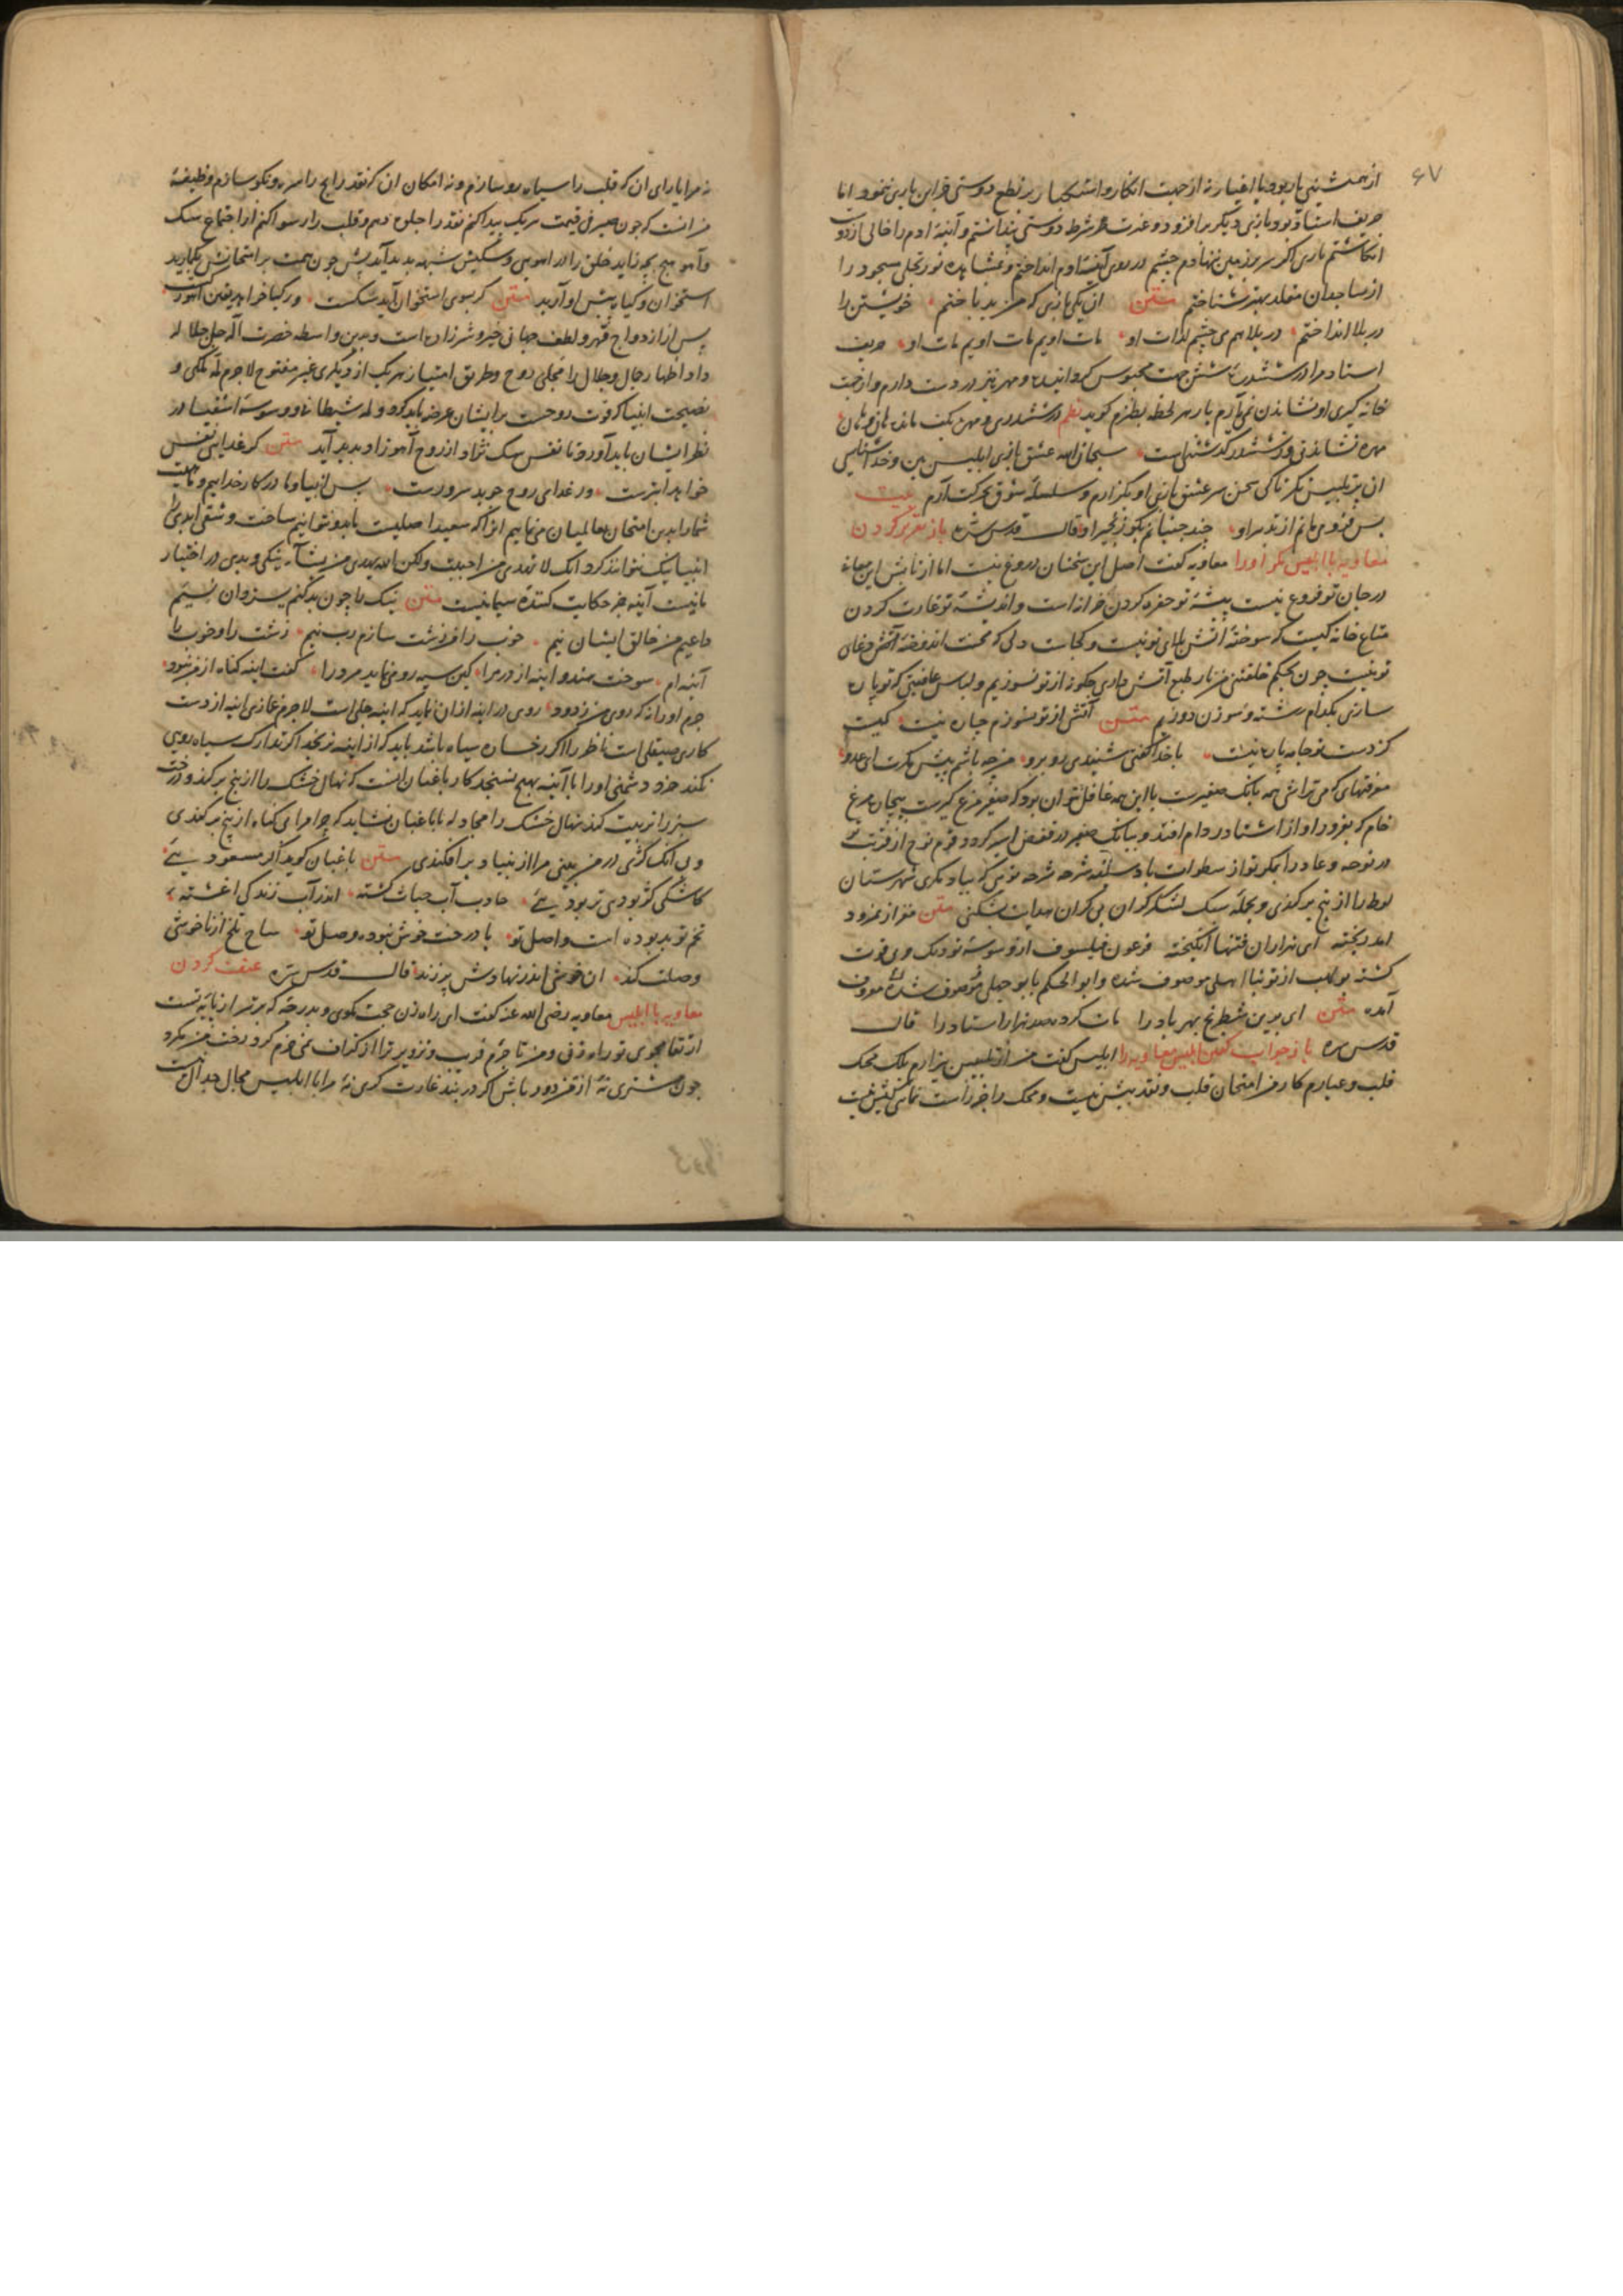 ۶۷
از همنشینی یار بود با اغیار نه از جهت انکار و استکبار بر نطع دوستی فراین بازی ننمود اما
حریف استاد بود بازی دیگر برافزود و غیرت شرط دوستی پنداشتم و آئینه آدم را خالی از دوست
انکاشتم باری اکر سر بر زمین ننهادم چشم در روی آئینه آدم انداختم و مشاهده نور تجلی مسجود را
از ساجدان مقلد بهتر شناختم متن آن یکی بازی که بد من باختم خویشتن را
در بلا انداختم در بلا هم می چشم لذات او مات اویم مات اویم مات او حریف
استاد مرا در ششدره شش جهت محبوس کردانیده و مهره نیز در دست دارم و از جهت
خانه کیری او نشاندن نمی یارم یار هر لحظه بطنزم کوید نظم در ششدری و مهره بکف مانده هان و هان
مهره نشاندن و ز ششدر کذشتن است سبحان الله عشق بازی ابلیس بین و خداشناسی
آن پرتلبیس نکر تا کی سخن سر عشق بازی او بکزارم و سلسله شوق بحرکت آرم بیت
بس فزوی مانم از تدبیر او چند جنبانم بکو زنجیر او قال قدس سره باز تقریر کردن
معاویه با ابلیس مکر اورا معاویه کفت اصل این سخنان دروغ نیست اما از تابش این معانی
در جان تو فروغ نیست پیشه تو حفره کردن خزانه است و اندیشه تو غارت کردن
متاع خانه کیست که سوخته آتش بلای تو نیست و کجاست دلی که محنت اندوخته آتش دغای
تو نیست چون بحکم خلقتنی من نار طبع آتش داری چکونه از تو نسوزیم و لباس عافیتی که تو پاره
سازی بکدام رشته و سوزن دوزیم متن آتشی از تو نسوزم چاره نیست کیست
کز دست تو جامه پاره نیست با خدا کفتی شنیدی رو برو من چه باشم پیش مکرت ای عدو
معرفتهای که می تراشی همه بانک صفیرست با این همه غافل نتوان بود که صفیر مرغ کیرست بیچاره مرغ
خام که بغرور آواز آشنا در دام افتد و ببانک صفیر در قفص اسیر کردد قوم نوح از فریب تو
در نوحه و عاد را مکر تو از سطوات باد شرحه شرحه توئی که بباد مکری شهرستان
لوط را از بیخ برکندی و بحمله سنک لشکر کران بی کران بشکنی متن مغز از نمرود
آمد ریخته ای هزاران فتنها انکیخته فرعون فیلسوف از وسوسه تو
کشته بولهب از تو نااهلی موصوف شده و ابوالحکم با بوجهلی موصوف شده معروف
آمده متن ای برین شطرنج بهر یاد را مات کرده صد هزار استاد را قال
قدس سره باز جواب کفتن ابلیس معاویه را ابلیس کفت من از تلبیس بیزارم بلک محک
قلب و عیارم کار من امتحان قلب و نقد بیش نیست و محک را
نه مرا یارای آن که قلب را سیاه رو سازم و نه امکان آن که نقد رایج را سره و نکو سازم وظیفه
من آنست که چون صیرفی قیمت هریک پیدا کنم نقد را جلوه دهم و قلب را رسوا کنم از اجتماع سک
و آهو هیچ بچه زاید خلق را در آهویی و سکیش شبهه پدید آید پس چون همت بر امتحانش کمارید
استخوان و کیاه پیش او آرید متن کر بسوی استخوان آید سکست ور کیا خواهد یقین آهو رکست
پس از ازدواج قهر و لطف جهانی خیر و شر زاده است و بدین واسطه حضرت اله جل جلاله
داد اظهار جمال و جلال را مجلی و طریق امتیاز هریک از دیکری غیر مفتوح لاجرم لمه ملکی و
نصیحت انبیا که قوت روحست بر ایشان عرضه باید کرد و لمه شیطان و وسوسه اشقیا در
نظر ایشان باید آورد تا نفس سک نژاد از روح آهو زاد پدید آید متن کر غذای نفس
خواهد ابترست ور غذای روح جوید سرورست پس انبیا و ما در کار خداییم
شما را بدین امتحان بعالمیان می نماییم آنرا که سعید اصلیست بد نتوانیم ساخت و شقی ابدی را
انبیا نیک نتوانند کرد انک لا تهدی من احببت ولکن الله یهدی من یشاء نیکی و بدی در اختیار
ما نیست آئینه جز حکایت کننده سیما نیست متن نیک را چون بد کنم یزدان نیم
داعیم من خالق ایشان نیم خوب را من زشت سازم رب نیم زشت را و خوب را
آئینه ام سوخت هندو آینه از درد را کین سیه رو می نماید مرد را کفت آینه کناه از من نبود
جرم او را نه که روی من زدود روی در آینه از آن نماید که آینه جلی است لاجرم غمازی آینه از دست
کاری صیقلی است ناظر را اکر رخساره سیاه باشد باید که از آینه نرنجد اکر تدارک سیاه رویی
نکند جز دشمنی او را با آئینه بهیچ نسنجد کار باغبان آنست که نهال خشک را از بیخ برکند و درخت
سبز را تربیت کند نهال خشک را مجادله با باغبان نشاید که چرا مرا بی کناه از بیخ برکندی
و بی آنک کژی در من بینی مرا از بنیاد برافکندی متن باغبان کوید اکر مسعود یئی
کاشکی کژ بودی تر بود یئی جاذب آب حیات کشته اندر آب زندکی آغشته
تخم تو بد بوده است و اصل تو با درخت خوش نبوده وصل تو شاخ تلخ ار ناخوشی
وصلت کند آن خوشی اندر نهادش برزند قال قدس سره عنف کردن
معاویه با ابلیس معاویه رضی الله عنه کفت ای راه زن حجت مکوی
از تقاء بجوی تو راه زنی و من تاجرم فریب و تزویر ترا از کزاف نمی خرم کرد رخت من مکرد
چون مشتری نه از من دور باش اکر دربند غارت کری نه مرا با ابلیس مجال جدال نیست